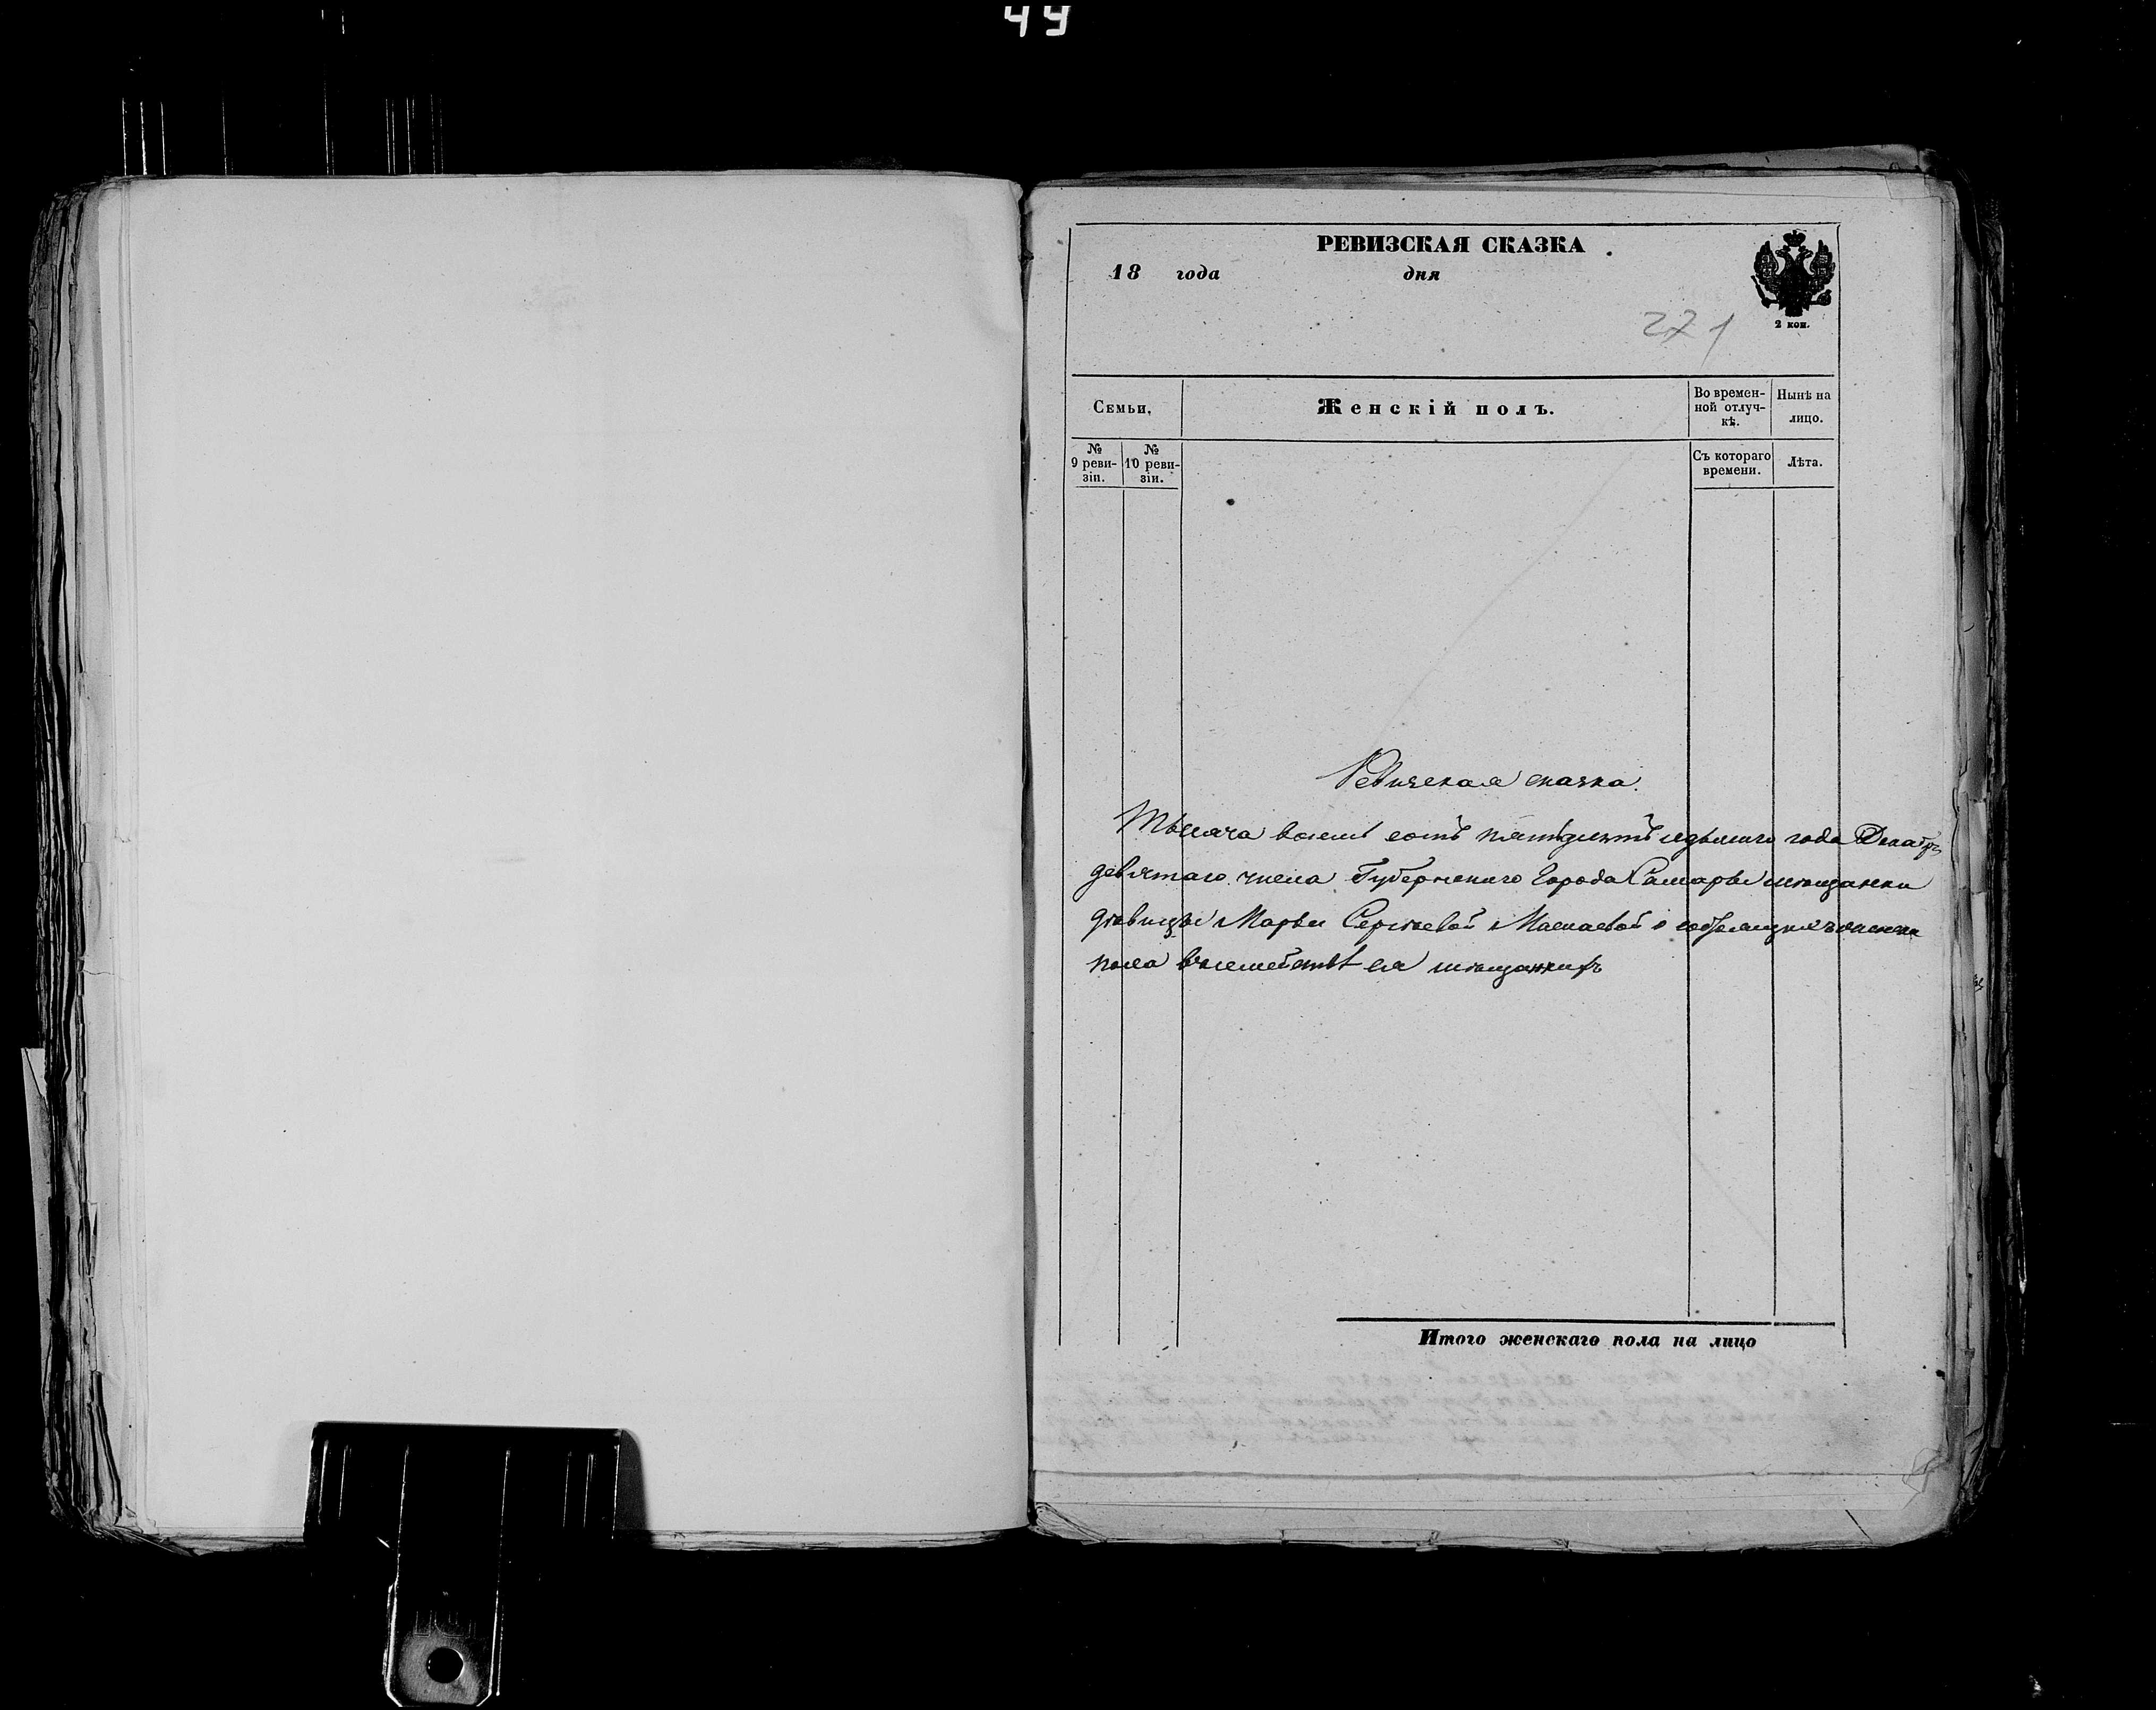 49
РЕВИЗСКАЯ СКАЗКА.
18 года дня
2 коп.
271
Семьи,
Женскій полъ.
Во времен-
ной отлуч-
кѣ.
Нынѣ на
лицо.
№
9 реви-
зіи.
№
10 реви-
зіи.
Съ котораго
времени.
Лѣта.
Ревизская сказка.
Тысяча восемь сотъ пятьдесятъ седьмаго года
девятаго числа Губернскаго Города Самары мѣщанки
дѣвицы Марьи Сергѣевой о состоящихъ женска
пола въ семействѣ ея мѣщанкахъ
Итого женскаго пола на лицо